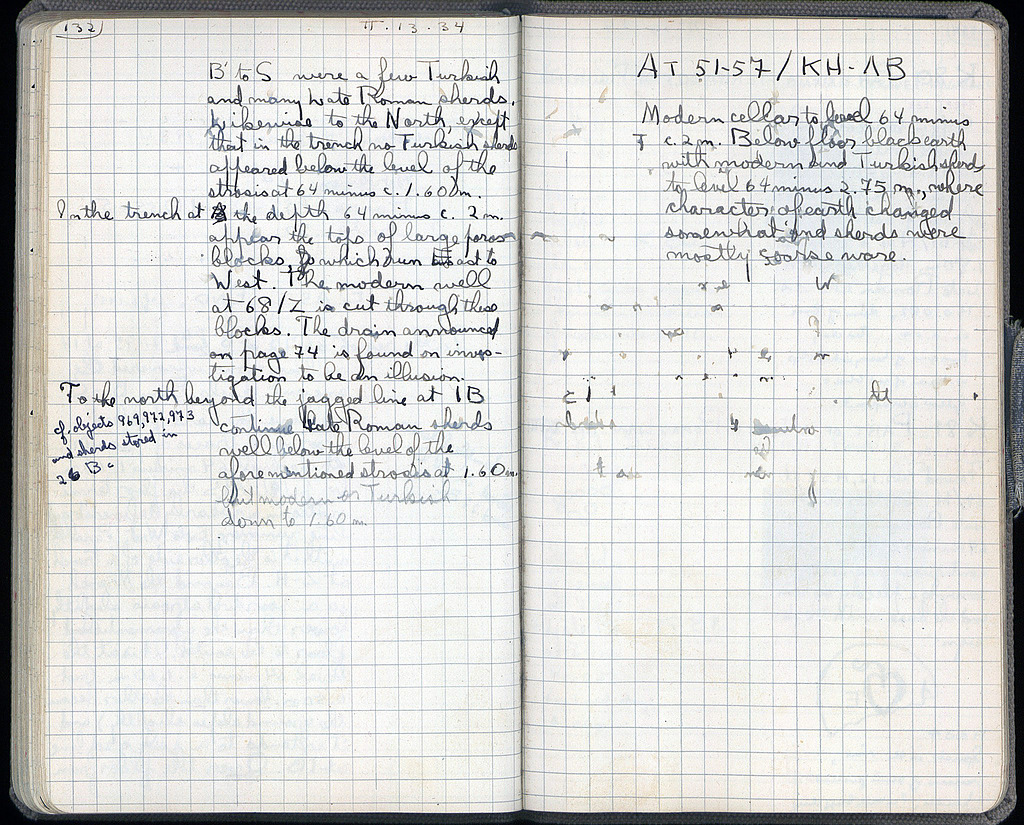 132
II · 13 · 34
B' to S were a few Turkish
and many Late Roman sherds.
Likewise to the North, except
that in the trench no Turkish sherds
appeared below the level of the
strosis at 64 minus c. 1.60 m.
In the trench at the depth 64 minus c. 2 m.
appear the tops of large poros
blocks, which run East to
West. The modern well
at 68/Z is cut through these
blocks. The drain announced
on page 74 is found on inves-
tigation to be an illusion.
To the north beyond the jagged line at 1B
cf. objects 969, 972, 973
and sherds stored in
26 B
continue Late Roman sherds
well below the level of the
aforementioned strosis at 1.60 m.
but modern or Turkish
down to 1.60 m.
AT 51-57/KH-ΛB
Modern cellar to level 64 minus
c. 2 m. Below floor black earth
with modern and Turkish sherds
to level 64 minus 2.75 m., where
character of earth changed
somewhat and sherds were
mostly coarse ware.